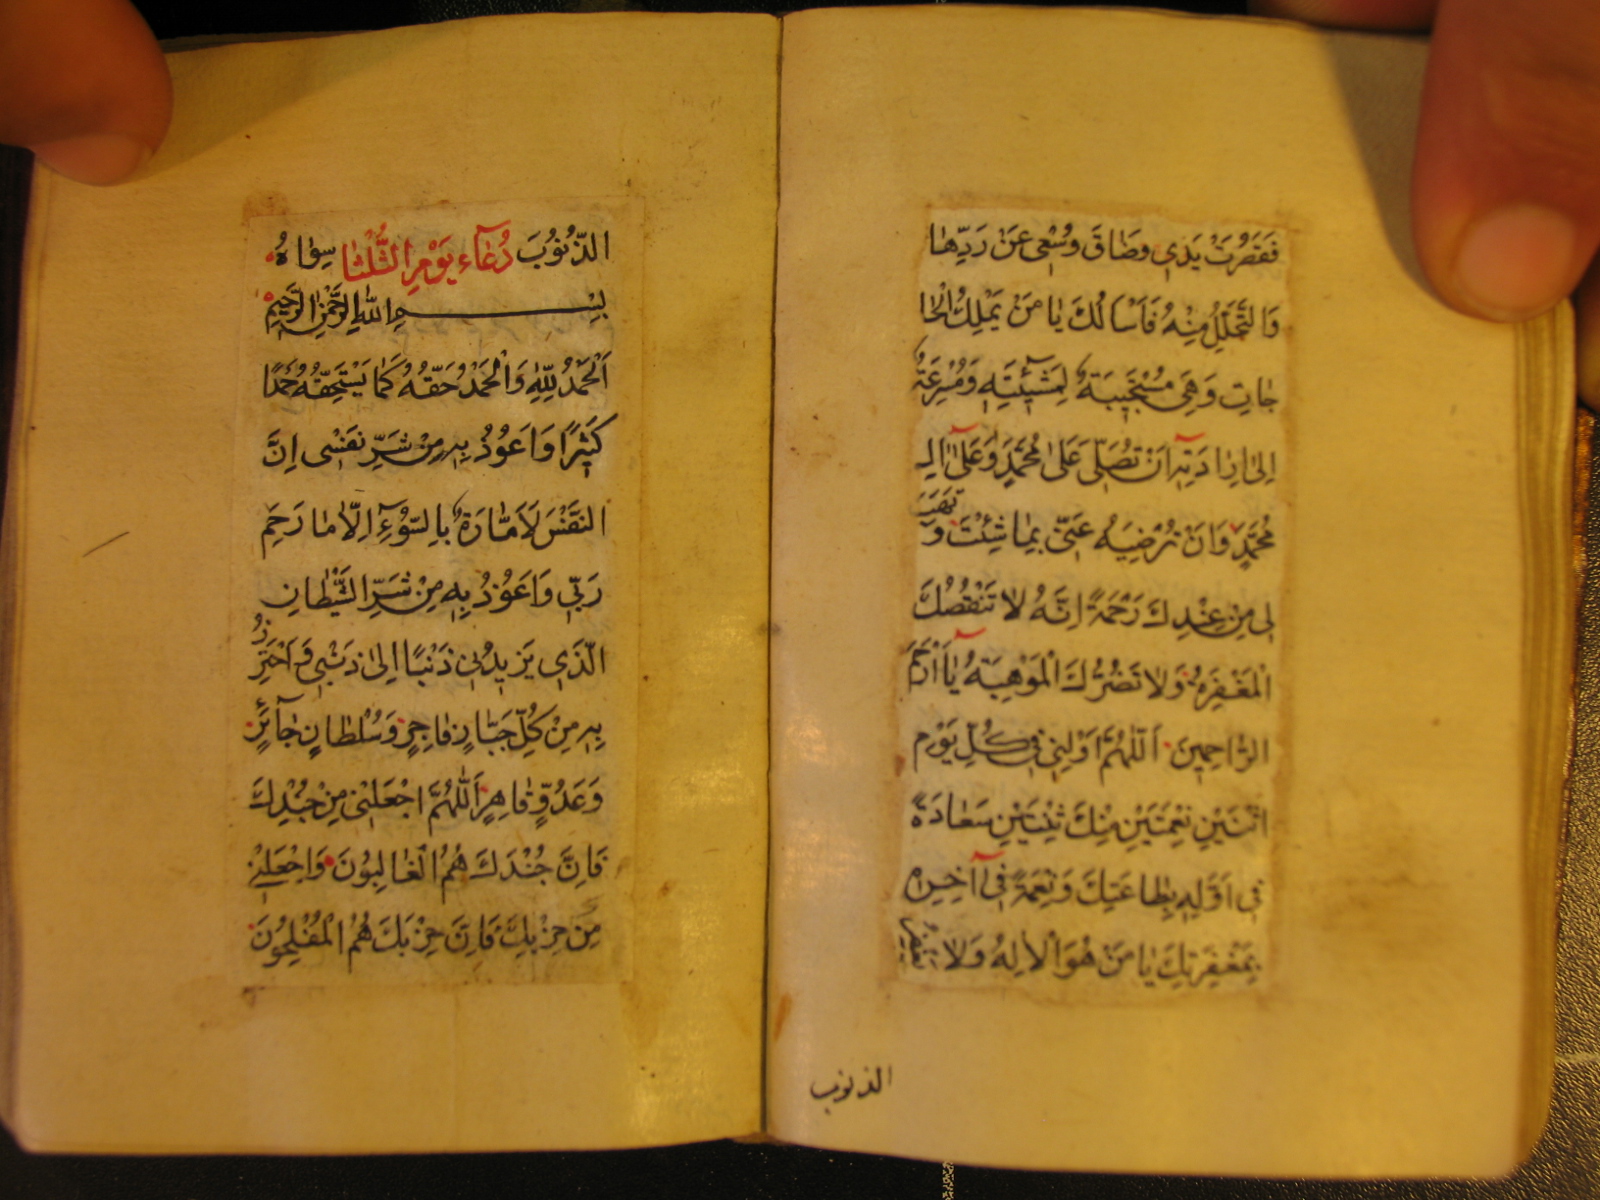 فَقَصُرَتْ يَدَىٖ وَضَاقَ وُسْعٖى عَنْ رَدِّهَا
وَالتَّحَلُّلِ مِنْهُ فَاَسْاَلُكَ يَا مَنْ يَمْلِكُ الْحَا
جَاتِ وَهِىَ مُسْتَجٖيبَةٌ لِمَشِيَّتِهٖ وَمُسْرِعَةٌ
اِلىٰ اِرَادَتِهٖ اَنْ تُصَلِّىَ عَلىٰ مُحَمَّدٍ وَعَلىٰ الِ
مُحَمَّدٍ وَاَنْ تُرْضِيَهُ عَنّٖى بِمَا شِئْتَ وَ تَهَبَ
لٖى مِنْ عِنْدِكَ رَحْمَةً اِنَّهُ لَا تَنْقُصُكَ
الْمَغْفِرَةُ وَلَا تَضُرُّكَ الْمَوْهِبَةُ يَا اَرْحَمَ
الرَّاحِمٖينَ اَللّٰهُمَّ اَوْلِنٖى فٖى كُلِّ يَوْمِ
اثْنَيْنِ نِعْمَتَيْنِ مِنْكَ ثِنْتَيْنِ سَعَادَةً
فٖى اَوَّلِهٖ بِطَاعَتِكَ وَنِعْمَةً فٖى آخِرِهٖ
بِمَغْفِرَتِكَ يَا مَنْ هُوَ الْاِلٰهُ وَلَا
الذنوب
الذُّنُوبَ دُعَآءِ يَوْمِ الثُّلٰثَا سِوَاهُ
بِسْمِ اللهِ الرَّحْمٰنِ الرَّحٖيمِ
اَلْحَمْدُ لِلّٰهِ وَالْحَمْدُ حَقُّهُ كَمَا يَسْتَحِقُّهُ حَمْدًا
كَثٖيرًا وَاَعُوذُ بِهٖ مِنْ شَرِّ نَفْسٖى اِنَّ
النَّفْسَ لَاَمَّارَةٌ بِالسُّوْءِ اِلَّا مَا رَحِمَ
رَبّٖى وَاَعُوْذُ بِهٖ مِنْ شَرِّ الشَّيْطَانِ
الَّذٖى يَزٖيدُنٖى ذَنْبًا اِلىٰ ذَنْبٖى وَاَحْتَرِزُ
بِهٖ مِنْ كُلِّ جَبَّارٍ فَاجِرٍ وَسُلْطَانٍ جَآئِرٍ
وَعَدُوٍّ قَاهِرٍ اَللّٰهُمَّ اجْعَلْنٖى مِنْ جُنْدِكَ
فَاِنَّ جُنْدَكَ هُمُ الْغَالِبُونَ وَاجْعَلْنٖى
مِنْ حِزْبِكَ فَاِنَّ حِزْبَكَ هُمُ الْمُفْلِحُونَ